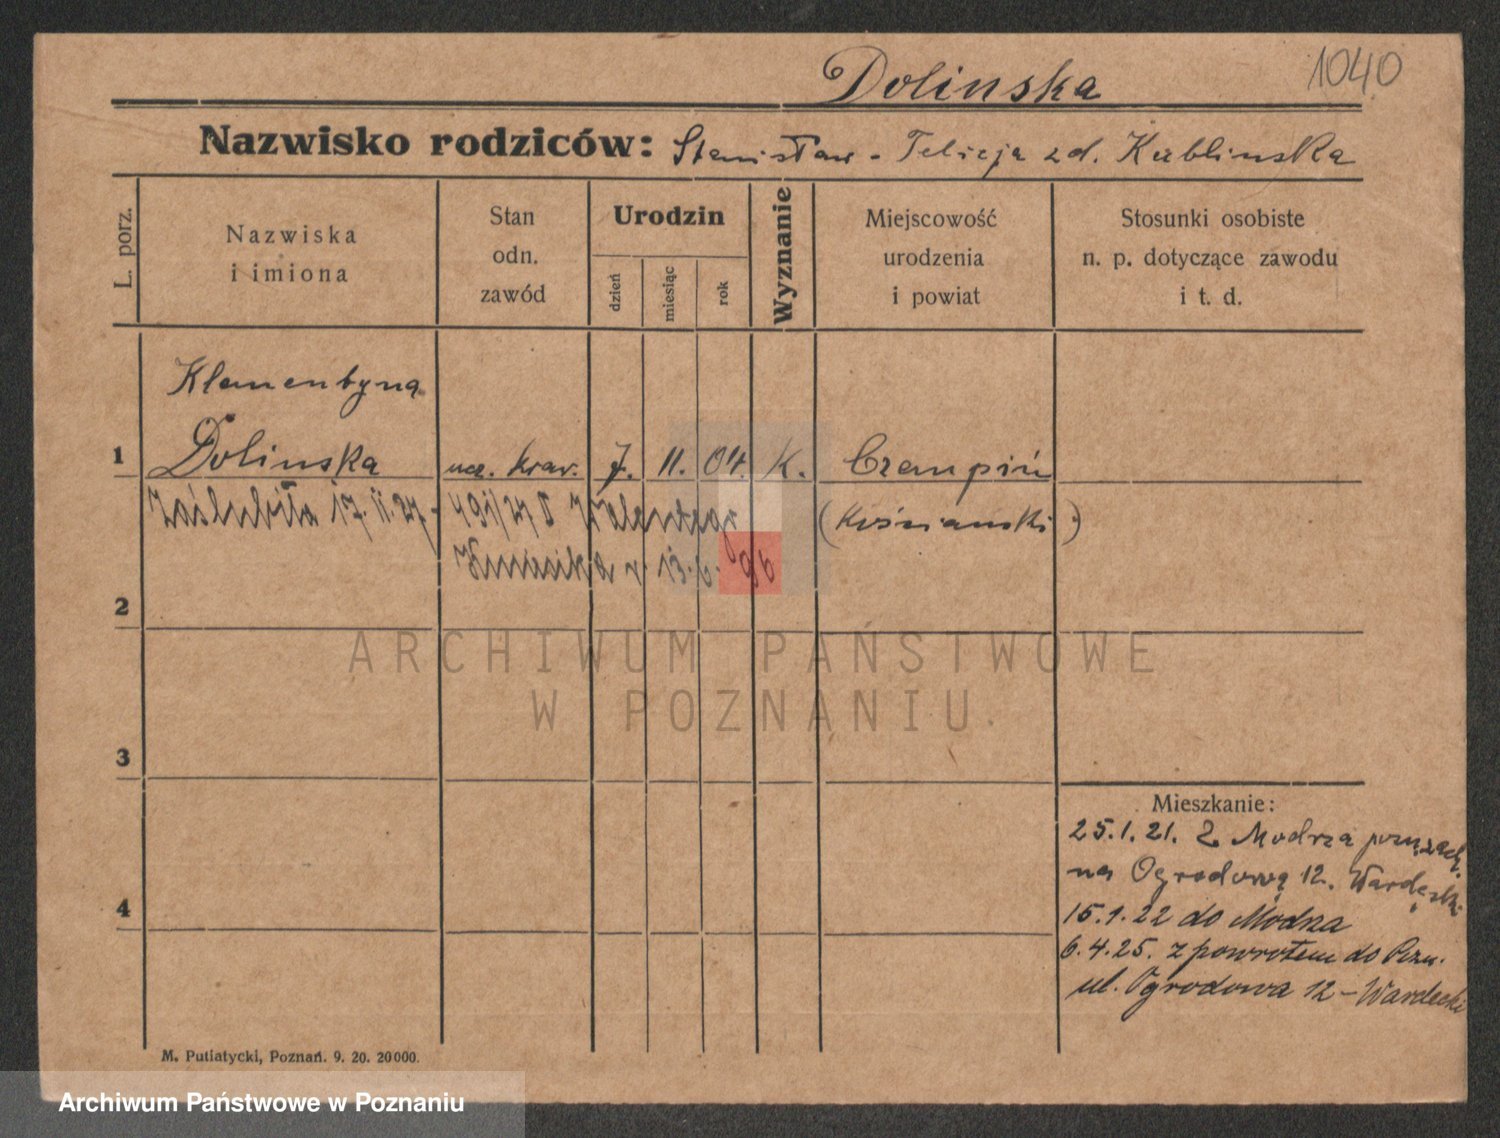 Dolinska
1040
Nazwisko rodziców: Stanisław - Felicja zd. Kublinska
L. porz.
Nazwiska
i imiona
Stan
odn.
zawód
Urodzin
dzień
miesiąc
rok
Wyznanie
Miejscowość
urodzenia
i powiat
Stosunki osobiste
n. p. dotyczące zawodu
i t. d.
Klementyna
1 Dolinska ucz. kraw. 7. 11. 04. K. Czempiń
Zaślubiła 17. II. 27. Walentego (Kościanski)
r. 13. 6. 96
2
3
Mieszkanie:
25.1.21. Z Modrza
na Ogrodową 12. Wardęski
4
15.1.22 do Modrza
6.4.25. z powrotem do Pozn.
ul. Ogrodowa 12 - Wardecki
M. Putiatycki, Poznań. 9. 20. 20000.
ARCHIWUM PAŃSTWOWE
W POZNANIU
Archiwum Państwowe w Poznaniu